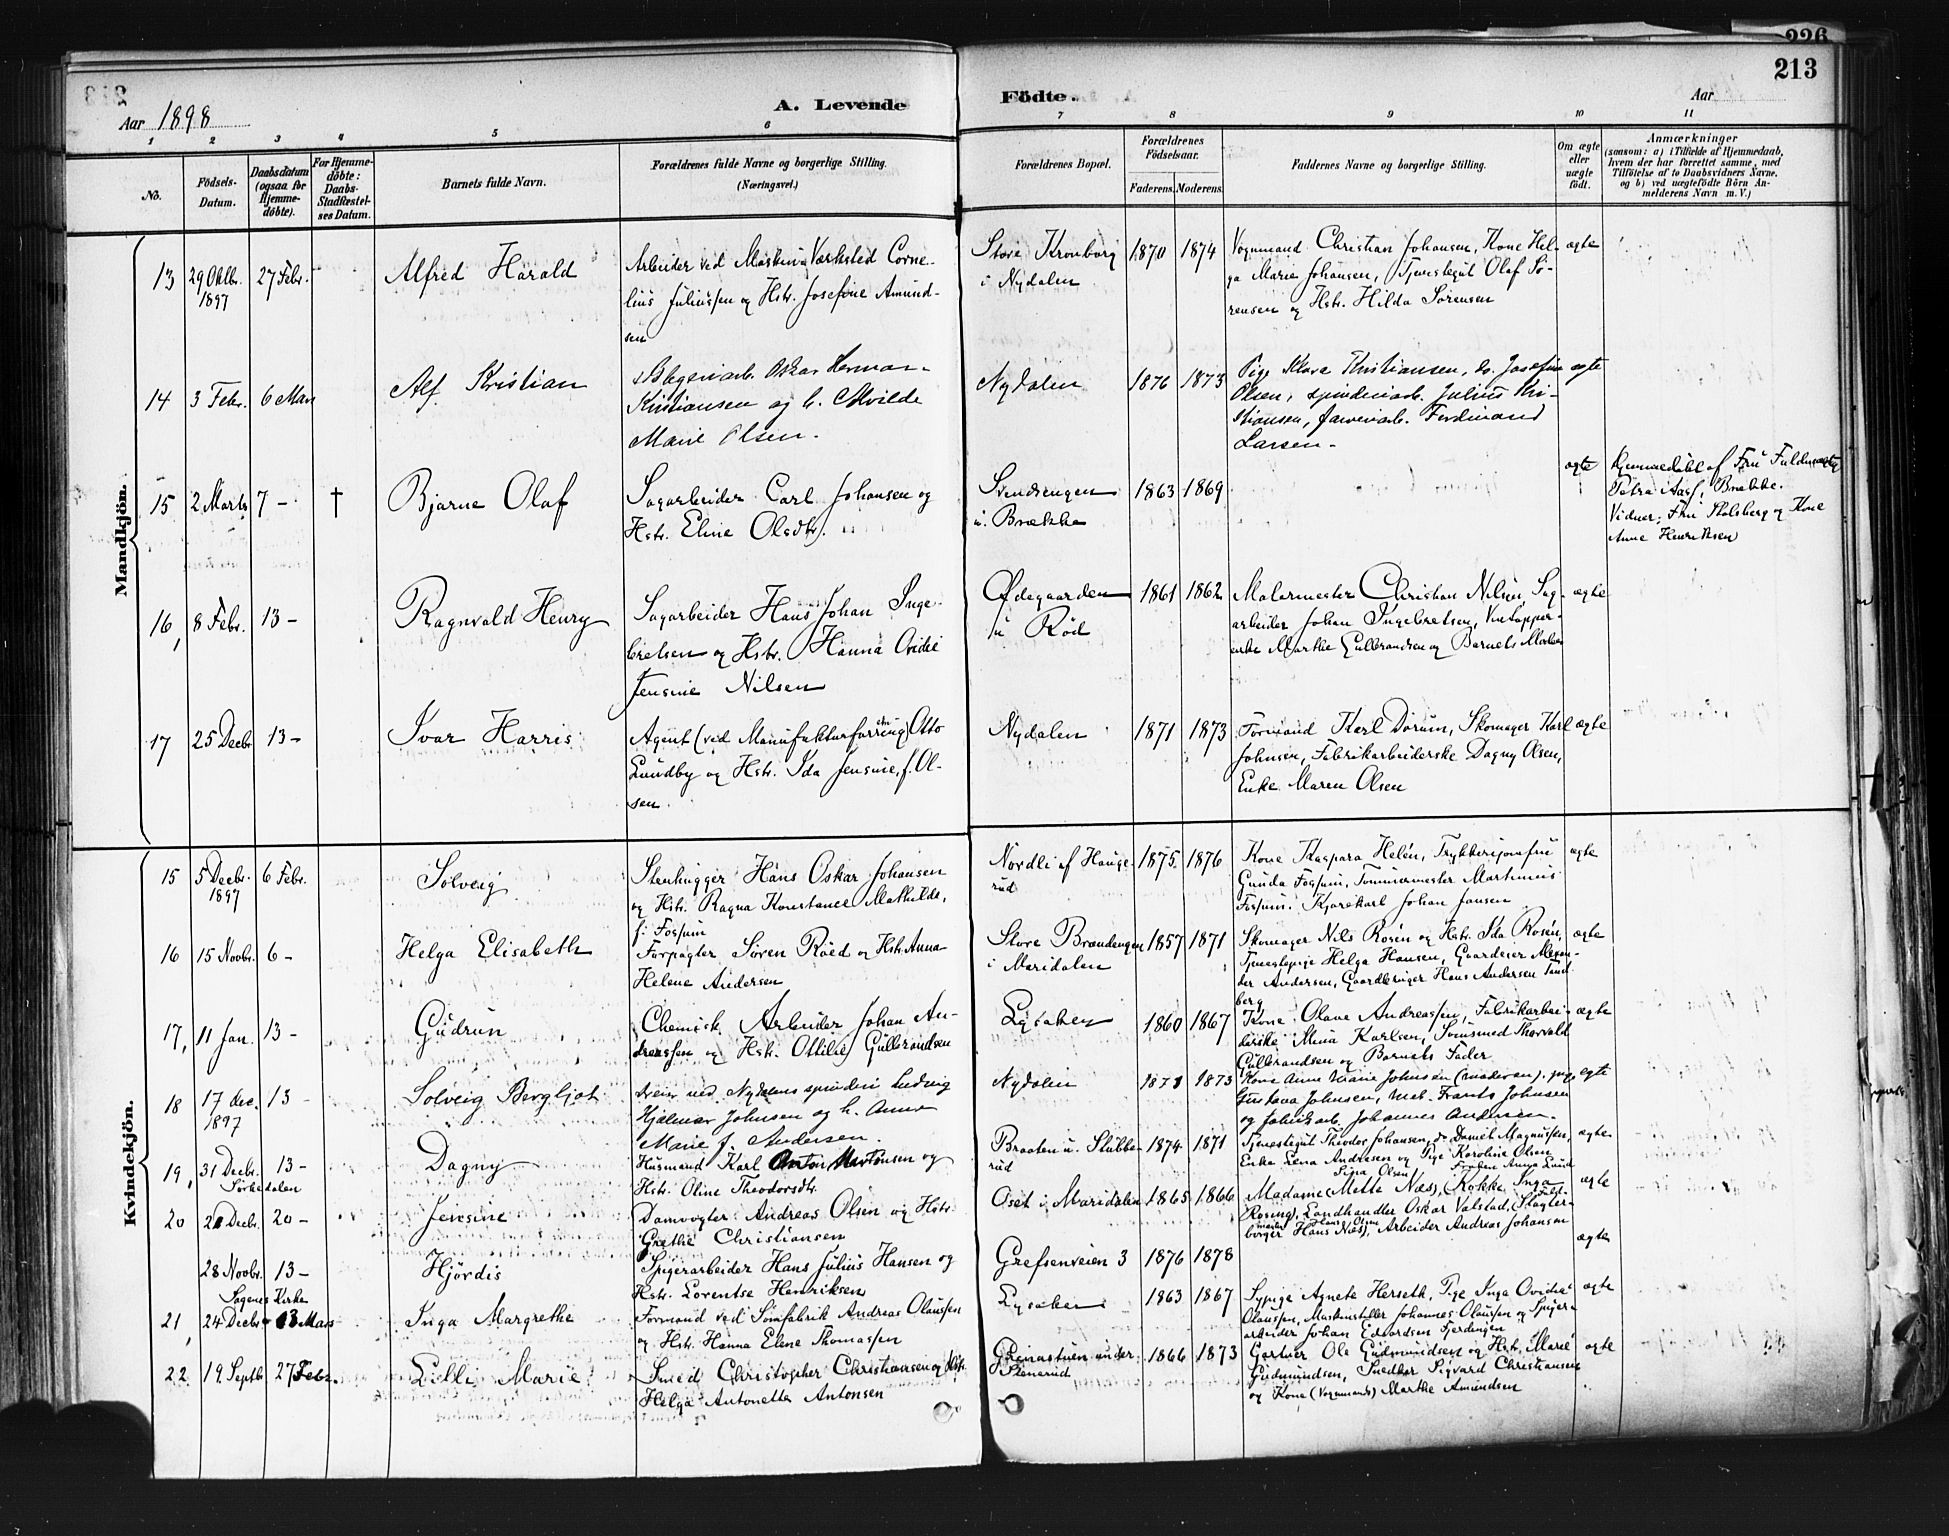 226
213
Aar 1898
A. Levende
Födte.
Aar
1 2 3 4 5 6 7 8 9 10 11
No.
Födsels-Datum.
Daabsdatum (ogsaa for Hjemme-döbte).
For Hjemme-döbte: Daabs-Stadfæstel-ses Datum.
Barnets fulde Navn.
Forældrenes fulde Navne og borgerlige Stilling.
(Næringsvei.)
Forældrenes Bopæl.
Forældrenes Födselsaar.
Faderens. Moderens.
Faddernes Navne og borgerlige Stilling.
Om ægte eller uægte födt.
Anmærkninger
(saasom: a) i Tilfælde af Hjemmedaab,
hvem der har forrettet samme, med
Tilföielse af to Daabsvidners Navne,
og b) ved uægtefödte Börn An-
melderens Navn m. V.)
Mandkjön.
13 29 Oktbr. 1897 27 Febr. Alfred Harald
Arbeider ved Maskin Værksted Corne-
lius Juliussen og Hstr. Josefine Amund-
sen
Store Kronborg
i Nydalen
1870 1874
Vognmand Christian Johansen, Kone Hel-
ga Marie Johansen, Tjenestegut Olaf Sö-
rensen og Hstr. Hilda Sörensen
ægte
14 3 Febr. 6 Mars Alf Kristian
Blegeriarb. Oskar Herman
Kristiansen og h. Alvilde
Marie Olsen.
Nydalen 1876 1873
Pige Klara Kristiansen, do. Josefine
Olsen, spinderiarb. Julius Kri-
stiansen, farveriarb. Ferdinand
Larsen.
ægte
15 2 Marts 7 - † Bjarne Olaf
Sagarbeider Carl Johansen og
Hstr. Eline Olsdtr.
Svendsengen
u. Brække
1863 1869
ægte
Hjemmedöbt af Fru Fuldmægtig
Petra Aas, Brække.
Vidner: Fru Stolsberg og Kone
Anne Henriksen
16 8 Febr. 13 - Ragnvald Henry
Sagarbeider Hans Johan Inge-
bretsen og Hstr. Hanna Ovidie
Jensine Nilsen
Ødegaarden
u Röd
1861 1862
Malermester Christian Nilsen, Sag-
arbeider Johan Ingebretsen, Vintapper-
enke Marthe Gulbrandsen og Barnets Moder
ægte
17 25 Decbr 13 - Ivar Harris
Agent (ved Manufakturforretning) Otto
Lundby og Hstr. Ida Jensine, f. Ol-
sen.
Nydalen 1871 1873
Formand Karl Dörum, Skomager Karl
Johnsen, Fabrikarbeiderske Dagny Olsen,
Enke Maren Olsen
ægte
Kvindekjön.
15 5 Decbr. 1897 6 Febr. Solveig
Stenhugger Hans Oskar Johansen
og Hstr. Ragna Konstance Mathilde,
f. Fossum
Nordli af Hauge-
rud
1875. 1876
Kone Kaspara Helén, Trykkerijomfru
Gunda Fossum, Tömmermester Martinius
Fossum. Kjörekarl Johan Jansen
ægte
16 15 Novbr. 6 - Helga Elisabeth
Forpagter Sören Röed og Hstr. Anna
Helene Andersen
Store Brændengen
i Maridalen
1857 1871
Skomager Nils Rosén og Hstr. Ida Rosén,
Tjenestepige Helga Hansen, Gaardeier Alexan-
der Andersen, Gaardbruger Hans Andersen Tand
berg
ægte
17, 11 Jan. 13 - Gudrun
Chemisk Arbeider Johan An-
dreassen og Hstr. Ottilie Gulbrandsen
Lysaker 1860 1867
Kone Olave Andreassen, Fabrikarbei-
derske Mina Karlsen, Svensmed Thorvald
Gulbrandsen og Barnets Fader
ægte
18 17 dec. 1897 13 - Solveig Bergljot
Dreier ved Nydalens spinderi Ludvig
Hjalmar Johnsen og h. Anna
Marie f. Andersen.
Nydalen 1871 1873
Kone Anne Marie Johnsen (moderen), pige
Gustava Johnsen, mek. Frants Johnsen
og fabrikarb. Johannes Andersen.
ægte
19, 31 Decbr. 13 - Dagny
Sörkedalen
Husmand Karl Anton Martinsen og
Hstr. Oline Theodorsdtr.
Braaten u. Stubbe-
rud
1874 1871
Tjenestegut Theodor Johansen, do Daniel Magnussen,
Enke Lena Andresen og Pige Karoline Olsen
ægte
20 21 Decbr. 20 - Jensine
Damvogter Andreas Olsen og Hstr.
Grethe Christiansen
Oset i Maridalen 1865 1866
Sina Olsen
Fröken Anna Lund
Madame (Mette Næs), Kokke Inga
Rosing, Landhandler Oskar Valstad, Slagter-
borger Hans Næs), Arbeider Andreas Johansen
ægte
28 Novbr. 13 - Hjördis
Sagenes Kirke
Spigerarbeider Hans Julius Hansen og
Hstr. Lorentse Henriksen
Grefsenveien 3 1876 1878
ægte
21, 24 Decbr 13 Mars Inga Margrethe
Formand ved Sömfabrik Andreas Olaussen
og Hstr. Hanna Eline Thomassen
Lysaker 1863 1867
Sypige Agnete Herseth, Pige Inga Ovidia
Olaussen, Maskinsteller Johannes Olaussen og Spiger-
arbeider Johan Edvardsen Fjerdingen
ægte
22 19 Septbr 27 Febr. Lilli Marie
Smed Christopher Christiansen og Hstr.
Helga Antonette Antonsen
Grinastuen under
Stenerud
1866 1873
Gartner Ole Gudmundsen og Hstr. Marie
Gudmundsen, Snedker Sigvard Christiansen
og Kone (Vognmands) Marthe Amundsen
ægte